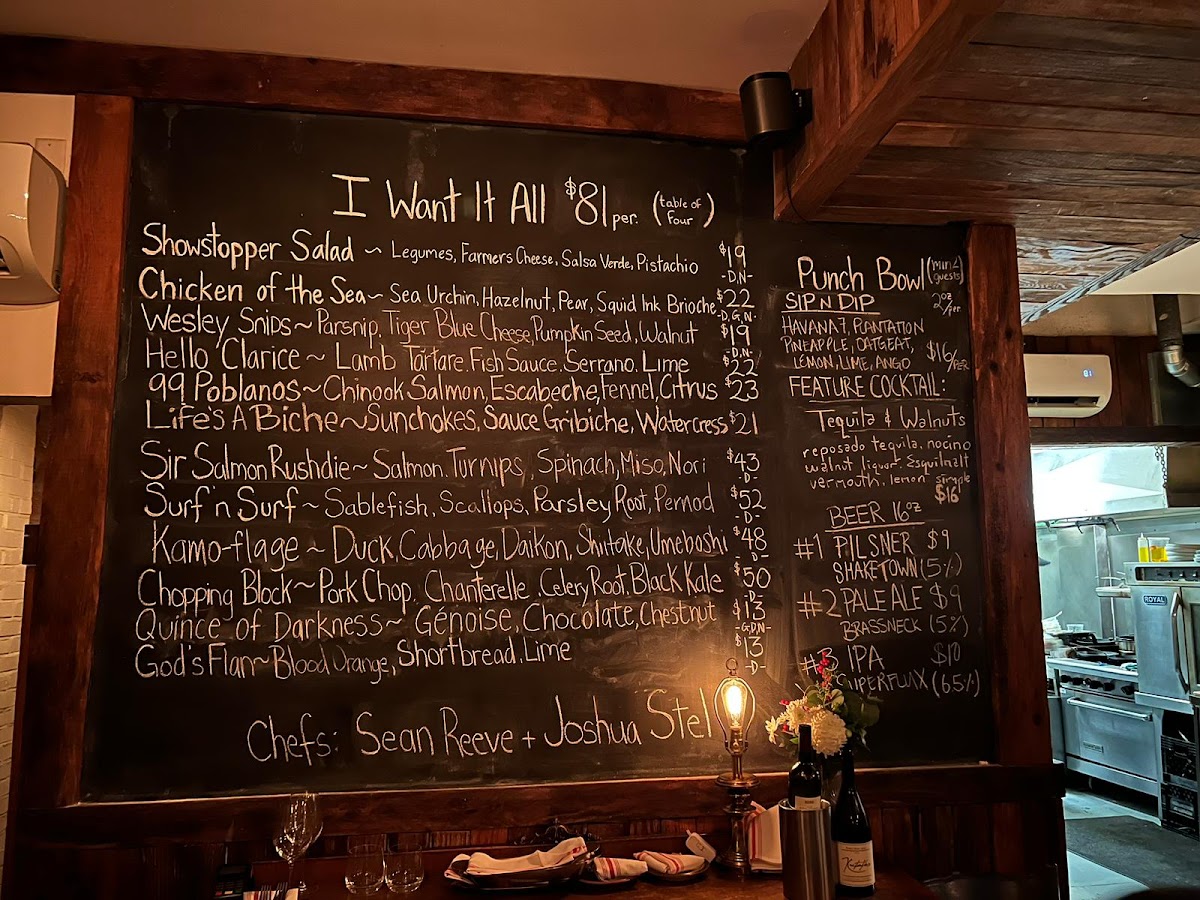 I Want It All $81 per. (table of four)
Showstopper Salad ~ Legumes, Farmers Cheese, Salsa Verde, Pistachio $19
-D,N-
Chicken of the Sea ~ Sea Urchin, Hazelnut, Pear, Squid Ink Brioche $22
-D,G,N-
Wesley Snips ~ Parsnip, Tiger Blue Cheese, Pumpkin Seed, Walnut $19
-D,N-
Hello Clarice ~ Lamb Tartare. Fish Sauce. Serrano. Lime $22
99 Poblanos ~ Chinook Salmon, Escabeche, Fennel, Citrus $23
Life's A Biche ~ Sunchokes, Sauce Gribiche, Watercress $21
Sir Salmon Rushdie ~ Salmon. Turnips, Spinach, Miso, Nori $43
-D-
Surf 'n Surf ~ Sablefish, Scallops, Parsley Root, Pernod $52
-D-
Kamo-flage ~ Duck, Cabbage, Daikon, Shiitake, Umeboshi $48
-D-
Chopping Block ~ Pork Chop. Chanterelle. Celery Root, Black Kale $50
-D-
Quince of Darkness ~ Génoise, Chocolate, Chestnut $13
-G,D,N-
God's Flan ~ Blood Orange, Shortbread, Lime $13
-D-
Chefs: Sean Reeve + Joshua Stel
Punch Bowl (min 2 guests)
SIP N DIP 2oz/per
HAVANA 7, PLANTATION
PINEAPPLE, OATGEAT,
LEMON, LIME, ANGO $16/per
FEATURE COCKTAIL:
Tequila & Walnuts
reposado tequila, nocino
walnut liquor, Esquimalt
vermouth, lemon, simple
$16
BEER 16oz
#1 PILSNER $9
SHAKETOWN (5%)
#2 PALE ALE $9
BRASSNECK (5%)
#3 IPA $10
SUPERFLUX (6.5%)
ROYAL